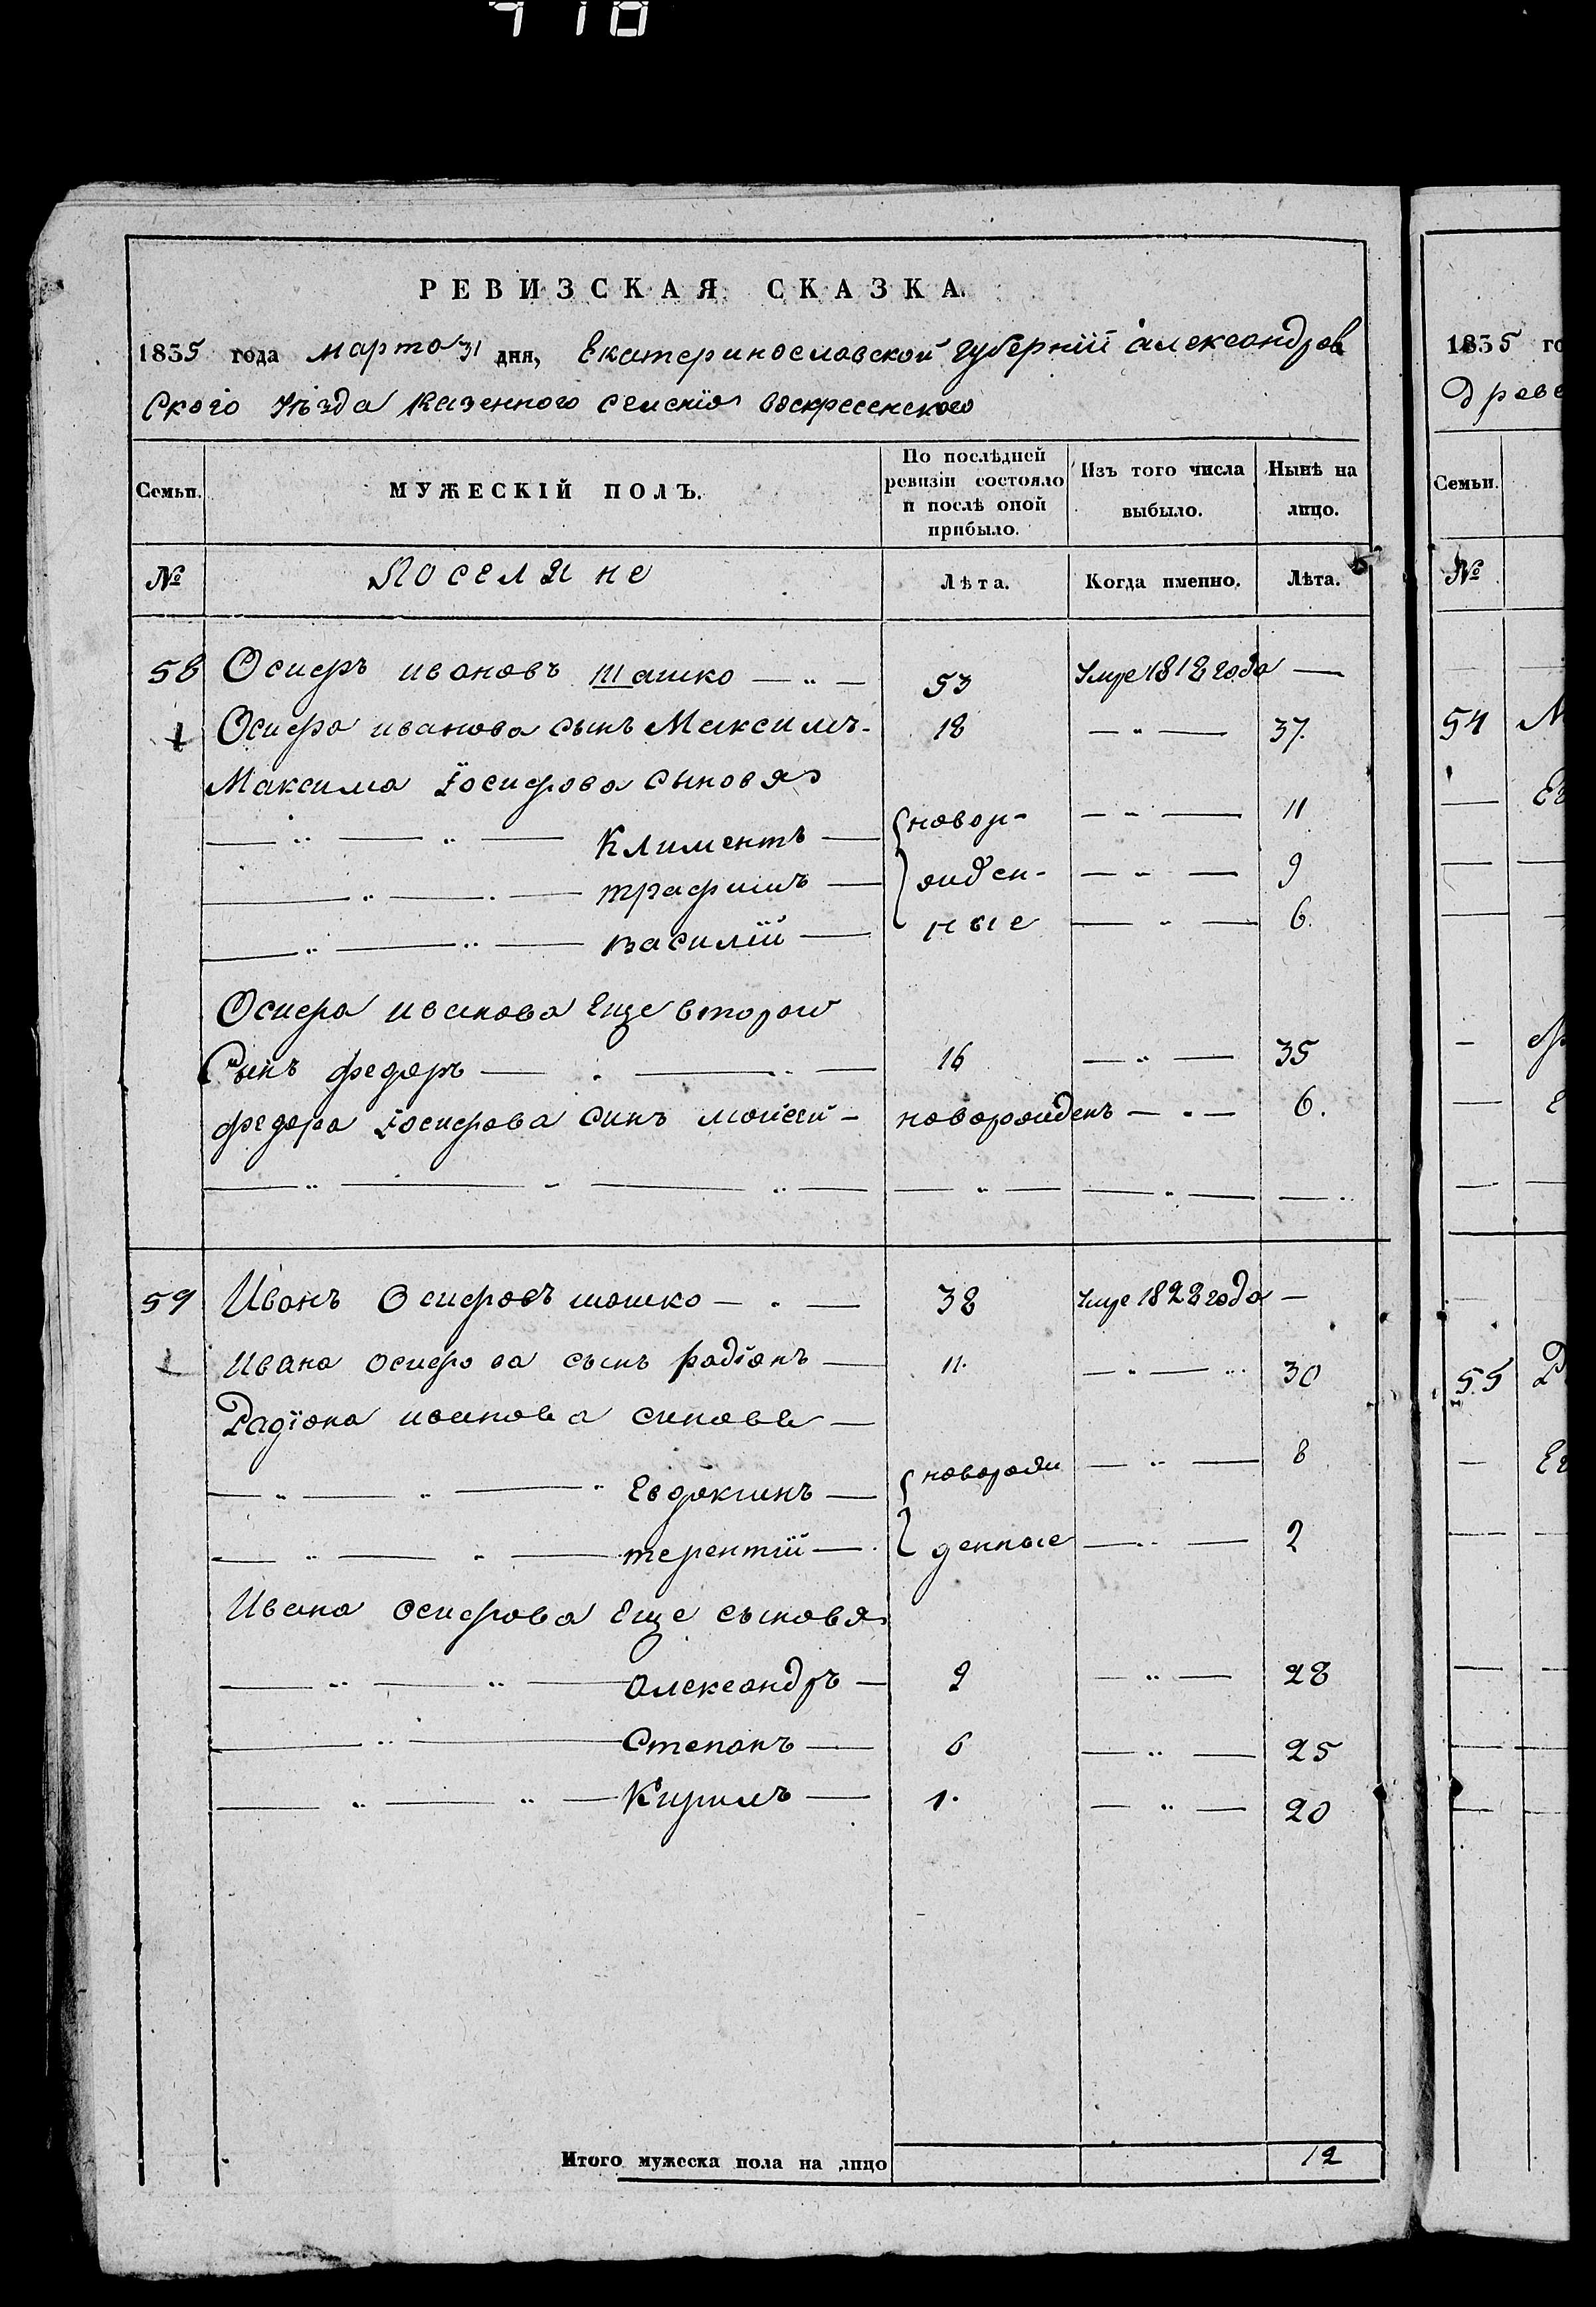 710
РЕВИЗСКАЯ СКАЗКА.
1835 года марта 31 дня, Екатеринославской губерніи александров
ского уѣзда казенного селенія воскресенского
Семьи. МУЖЕСКІЙ ПОЛЪ. По послѣдней ревизіи состояло и послѣ оной прибыло. Изъ того числа выбыло. Нынѣ на лицо.
№ Поселяне Лѣта. Когда именно. Лѣта.
58 Осифъ ивановъ шашко — 53 Умре 1818 года —
1 Осифа иванова сынъ Максимъ - 18 — 37.
Максима Іосифова сыновя
Климентъ — новор- — 11
трафимъ — жден- — 9
василій — ные — 6.
Осифа иванова Еще второй
Сынъ федоръ — 16 — 35
федора Іосифова синъ моисей - новорожденъ — 6.
59 Иванъ Осифовъ шашко — 38 Умре 1828 года —
1 Ивана осифова сынъ радіонъ — 11. — 30
Радіона иванова синове —
Евдокимъ — новорож — 8
терентій — денные — 2
Ивана осифова Еще сыновя
Александръ — 9 — 28
Степанъ — 6 — 25
Кирилъ — 1. — 20
Итого мужеска пола на лицо 12
1835 го
древе
Семьи.
№
54 М
Ег
55 Р
Ег